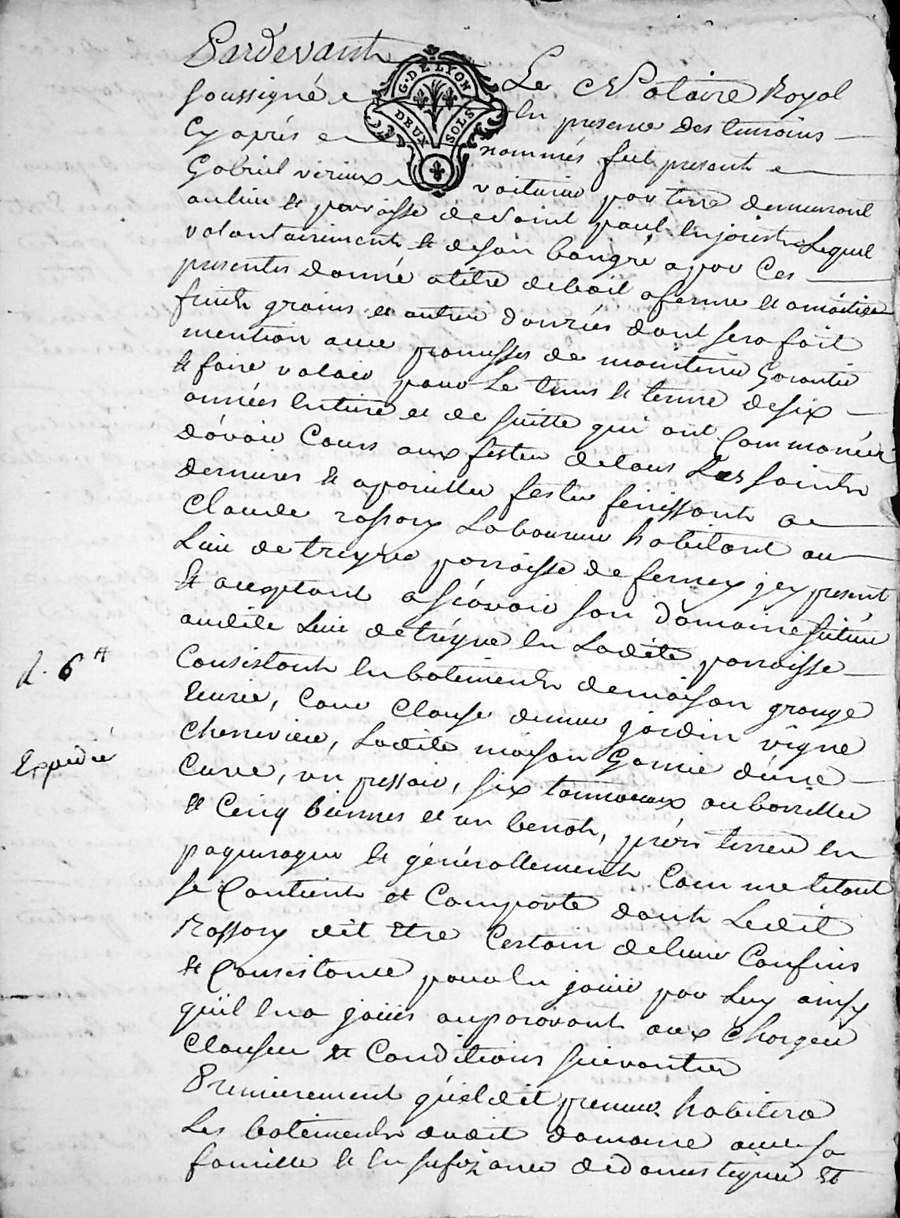 Pardevant Le Notaire Royal
G. DE LYON
DEUX SOLS
soussigné En presence des temoins
Cy aprés nommés fut present
Gabriel virieux voiturier par terre demeurant
au lieu & parroisse de Saint paul En jarest Lequel
volontairement & de son bongré a par Ces
presentes donné a titre de bail a ferme & a moitié
fruits grains & autres danrées dont sera fait
mention avec promesses de maintenir Garantir
& faire valoir pour Le tems & terme de six
années Entieres et de suitte qui ont Commancées
d'avoir Cours aux festes de tous Les saints
dernieres & a pareilles festes finissants a
Claude rossary Laboureur habitant au
Lieu de treyve parroisse de ferney jcy present
& aceptant a scavoir son Domaine situé
audit Lieu de treyve En Ladite parroisse
Consistant En batiments de maison grange
Ecurie, Cour Clause de mur jardin vigne
Cheneviere, Ladite maison Garnie d'une
Cuve, un pressoir, six tonneaux ou barrilles
& Cinq biennes et un benot, près terres En
paquerages & générallement Comme le tout
se Contient et Comporte dont Ledit
Rossary dit Etre Certain de leurs Confins
& Consistance pour En jouir par Luy ainsy
qu'il En a jouis auparavant aux Charges
Clauses & Conditions suivantes
Premierement que Ledit preneur habitera
Les batiments dudit domaine avec sa
famille & En sufizance de domestiques &
d. 6 ₶
Expediée